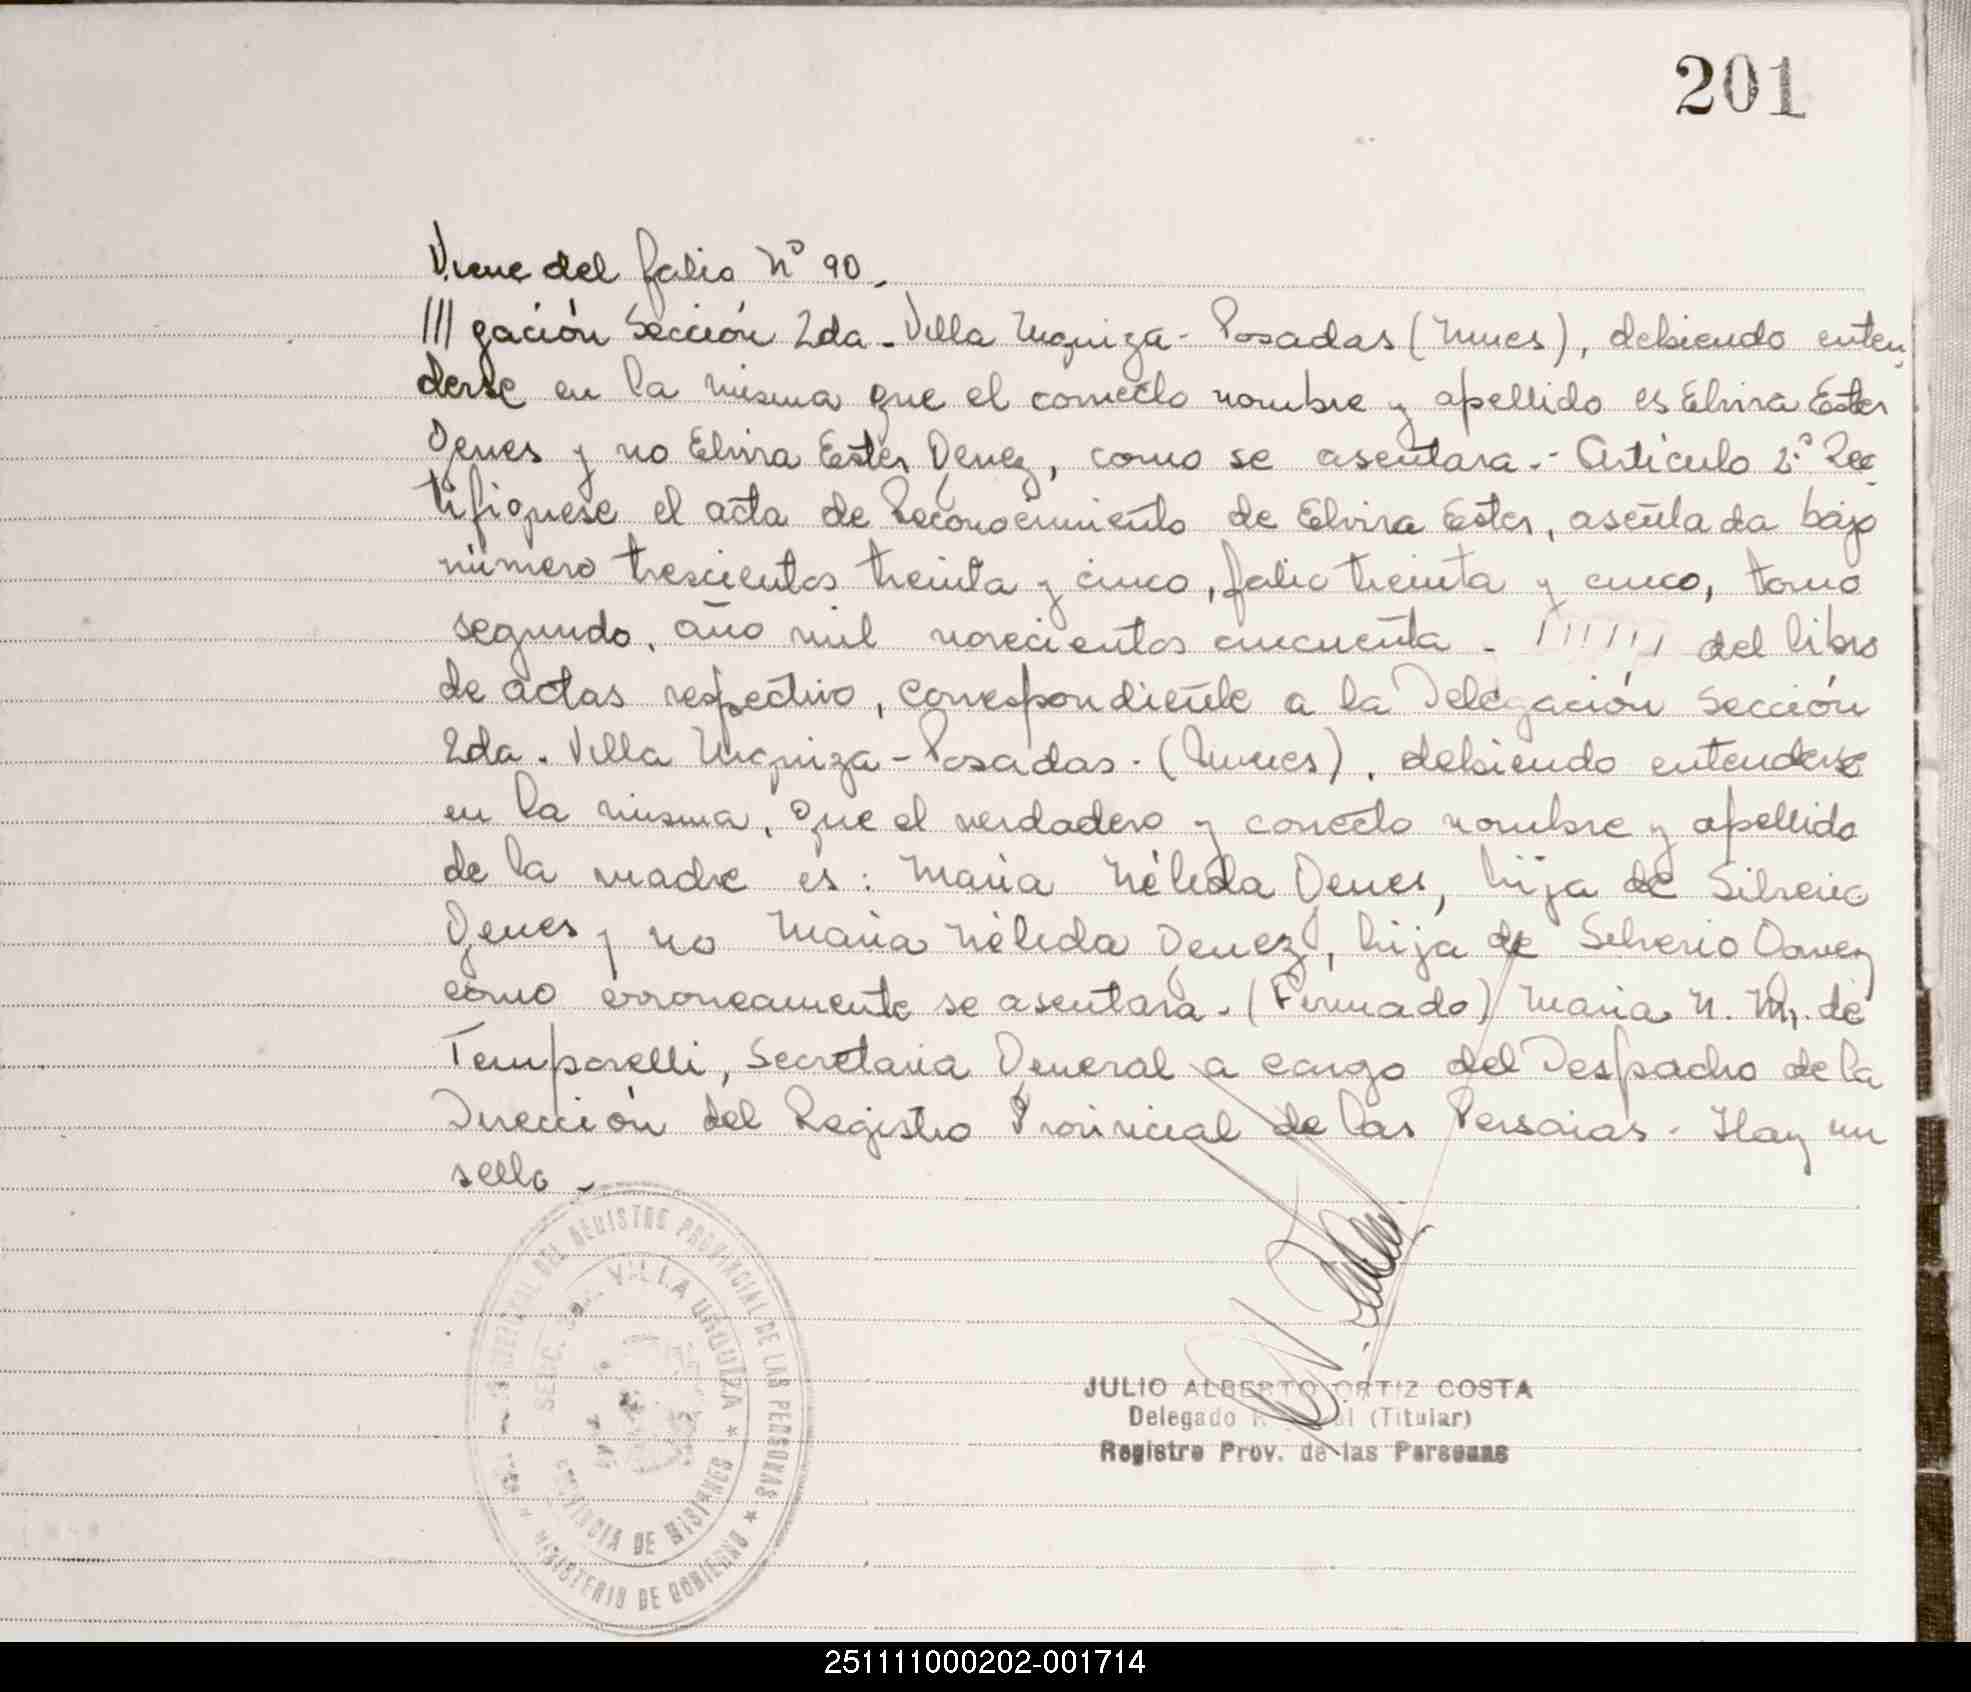 201
Viene del folio Nº 90.-
///gación Sección 2da.- Villa Urquiza- Posadas (Mnes), debiendo enten
derse en la misma que el correcto nombre y apellido es Elvira Ester
Genes y no Elvira Ester Genez, como se asentara.- Artículo 2º Rec
tifíquese el acta de Reconocimiento de Elvira Ester, asentada bajo
número trescientos treinta y cinco, folio treinta y cinco, tomo
segundo, año mil novecientos cincuenta - ////// del libro
de actas respectivo, correspondiente a la Delegación Sección
2da. Villa Urquiza - Posadas. (Mnes), debiendo entenderse
en la misma, que el verdadero y correcto nombre y apellido
de la madre es: María Nélida Genes, hija de Silverio
Genes y no María Nélida Genez, hija de Silverio
como erroneamente se asentara. (Firmado) María N. M. de
Temporelli, Secretaria General a cargo del Despacho de la
Dirección del Registro Provincial de las Personas. Hay un
sello -
GENERAL DEL REGISTRO PROVINCIAL DE LAS PERSONAS * MINISTERIO DE GOBIERNO
SECC. 2a. VILLA URQUIZA * PROVINCIA DE MISIONES
JULIO ALBERTO ORTIZ COSTA
Delegado (Titular)
Registro Prov. de las Personas
251111000202-001714